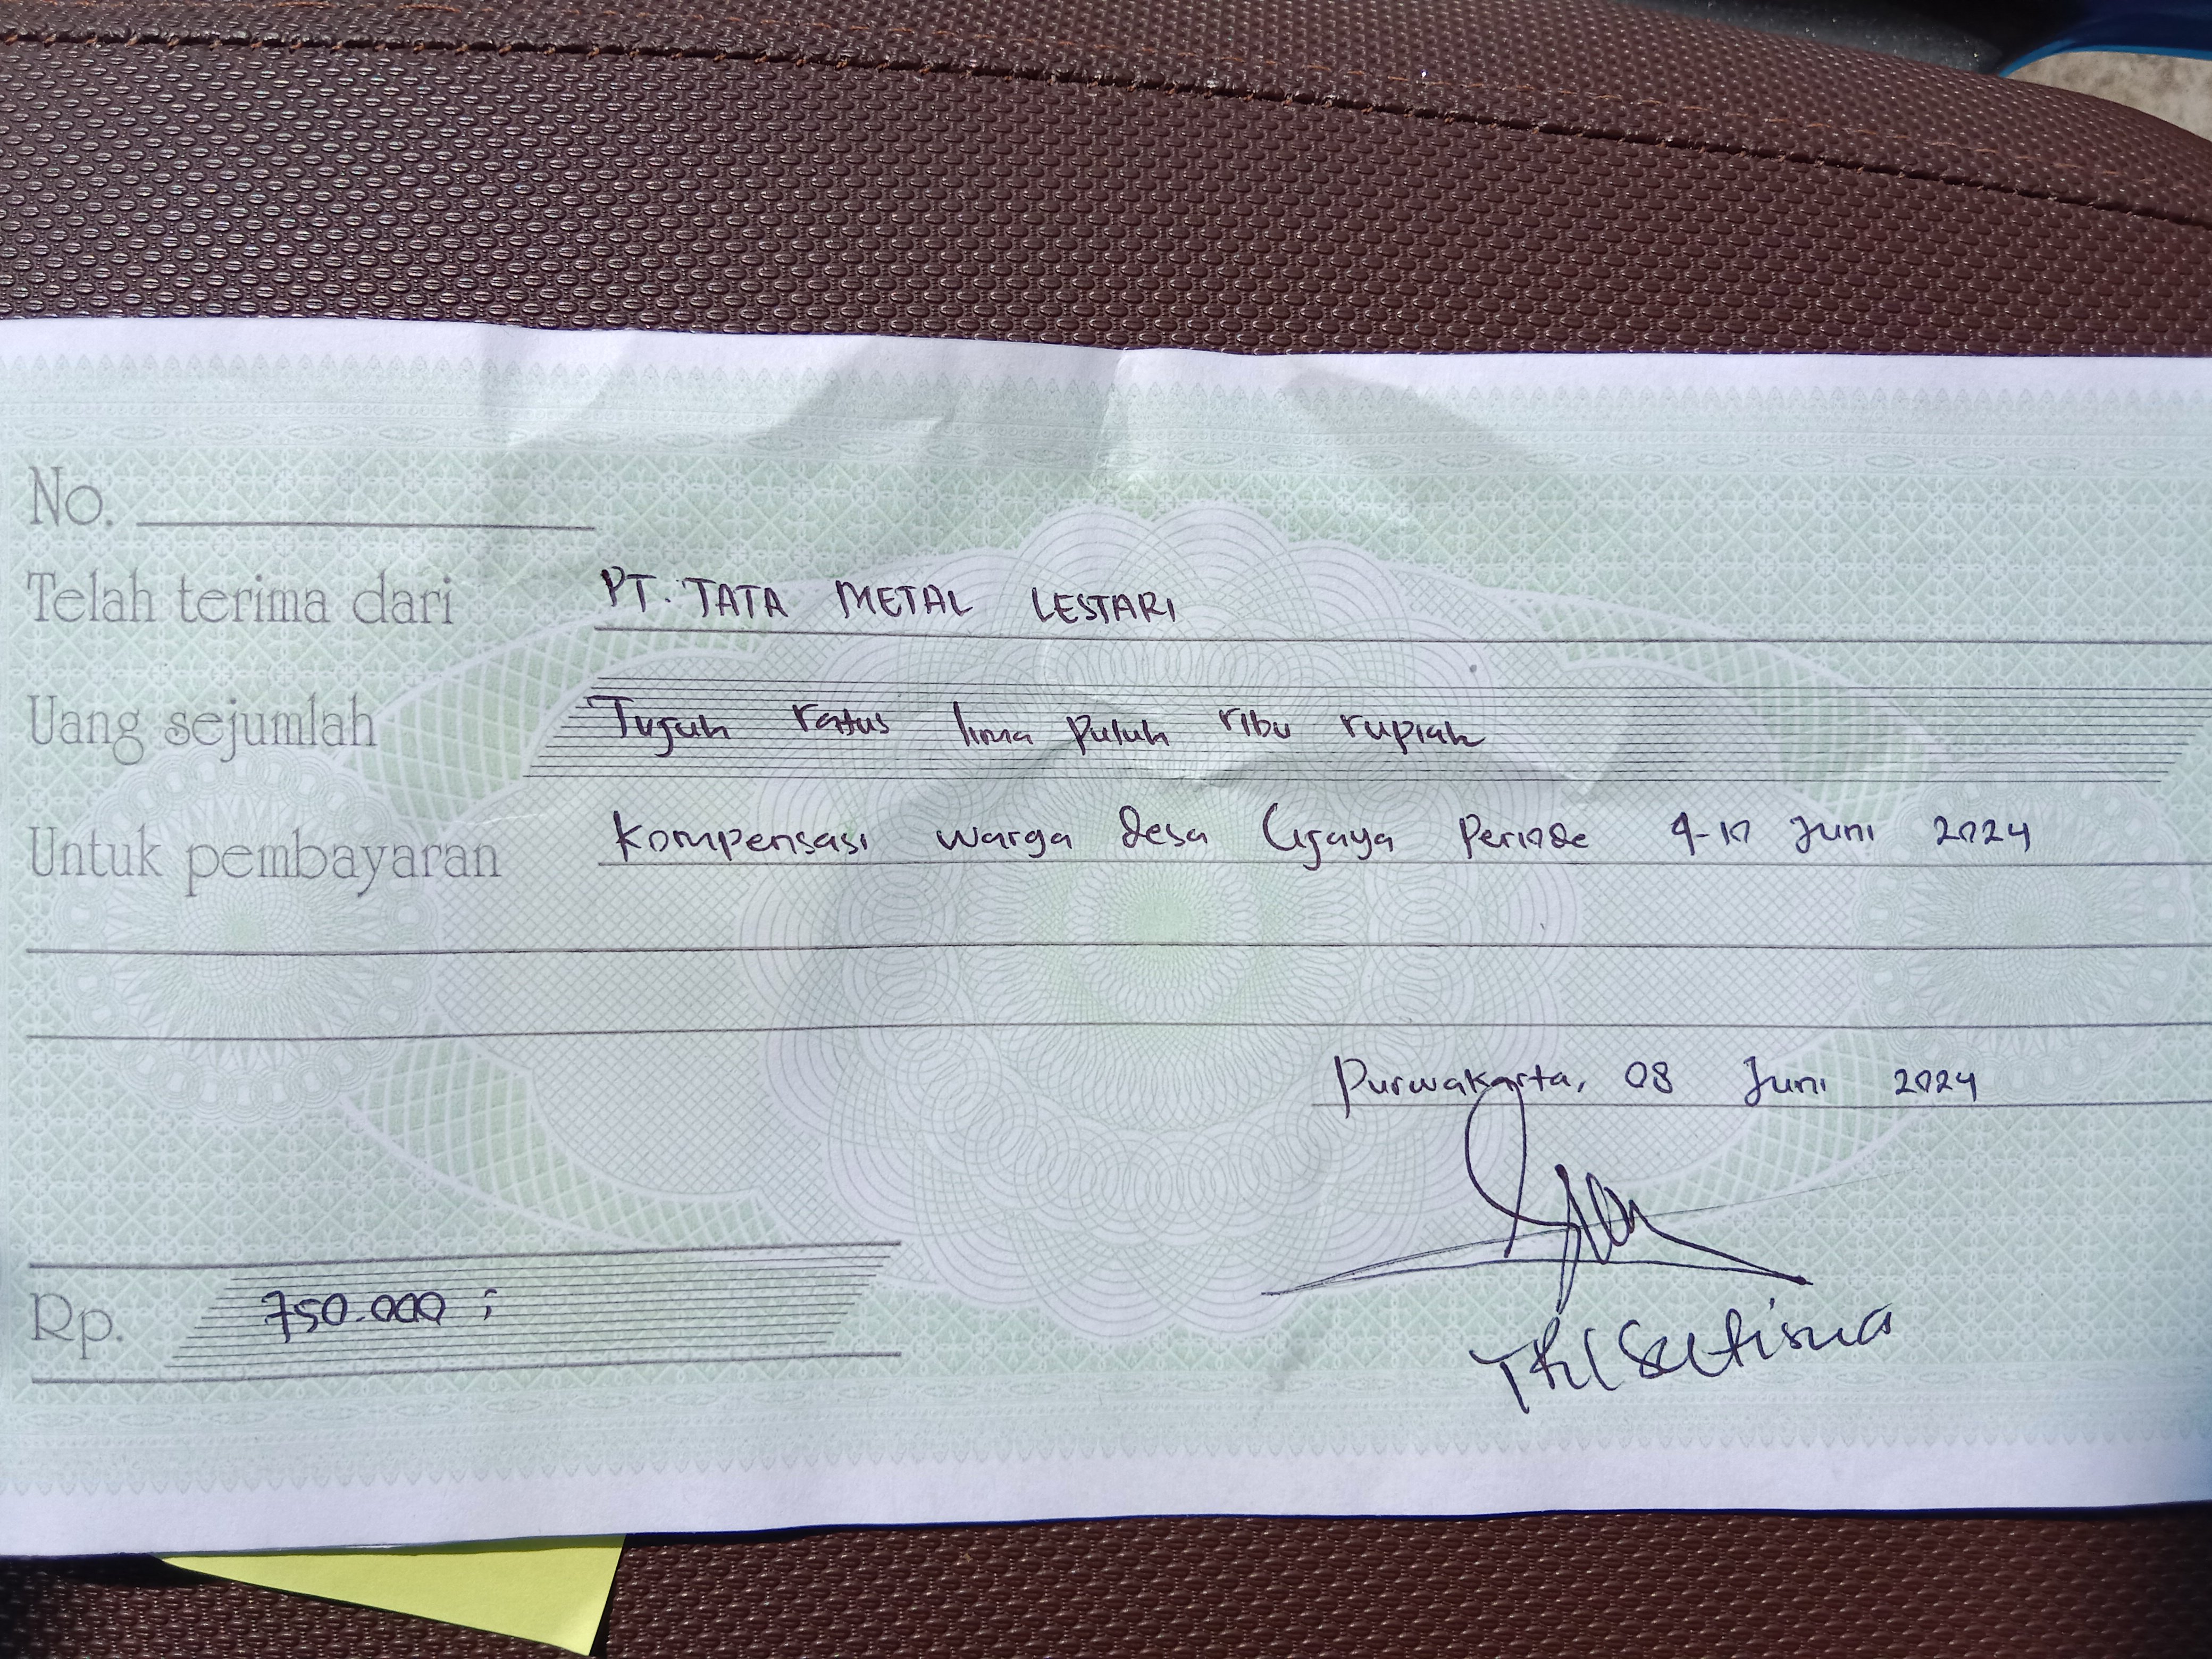 No.
Telah terima dari PT. TATA METAL LESTARI
Uang sejumlah Tujuh ratus lima puluh ribu rupiah
Untuk pembayaran Kompensasi warga desa Cijaya Periode 4-10 Juni 2024
Purwakarta, 08 Juni 2024
Rp. 750.000 ;
Sutisna